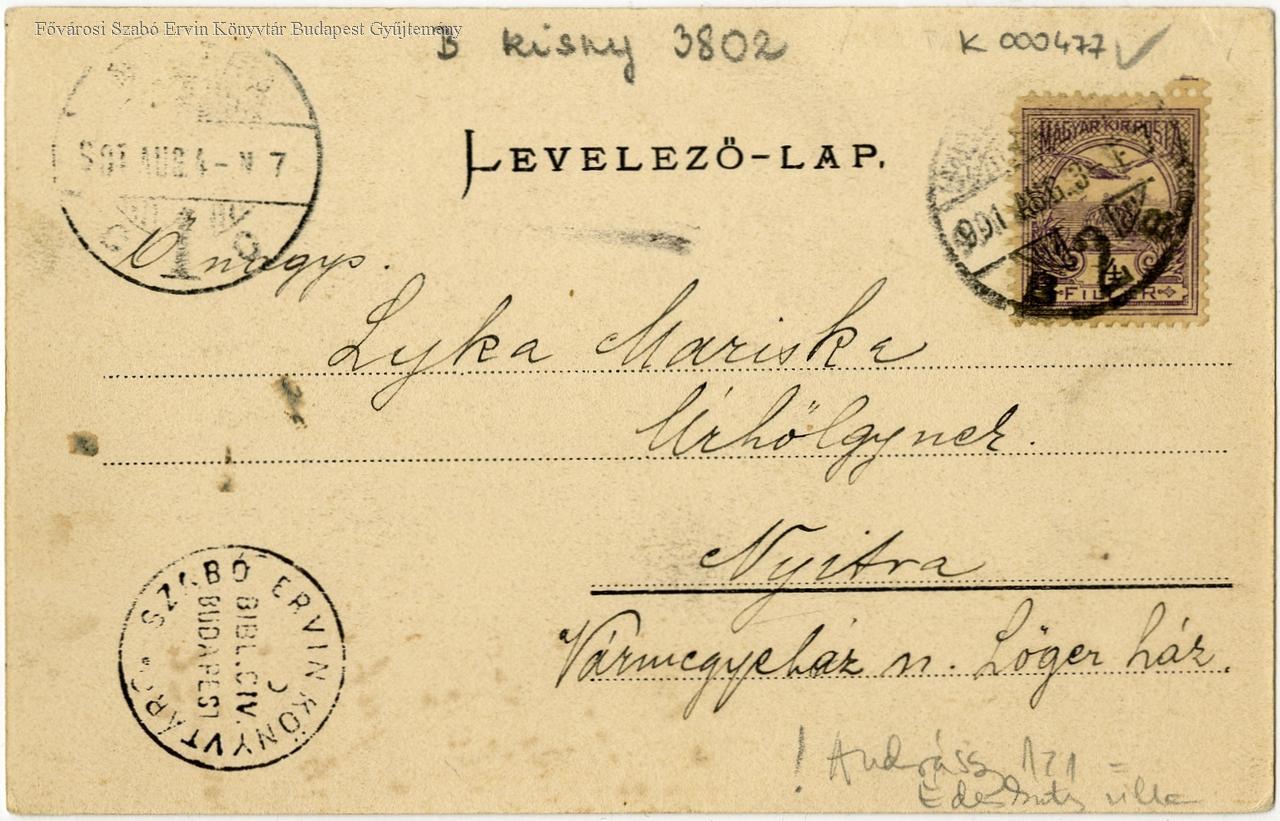 Fővárosi Szabó Ervin Könyvtár Budapest Gyűjtemény
B kisny 3802
K 000477
LEVELEZŐ-LAP.
901 AUG. 4 - N 7
MAGYAR KIR. POSTA
901 AUG. 3
4
FILLÉR
Ő nagys.
Lyka Mariska
Úrhölgynek.
Nyitra
Vármegyeház n. Lőger ház.
SZABÓ ERVIN KÖNYVTÁR
BIBL. CIV.
BUDAPEST
! Andrássy 121 =
villa